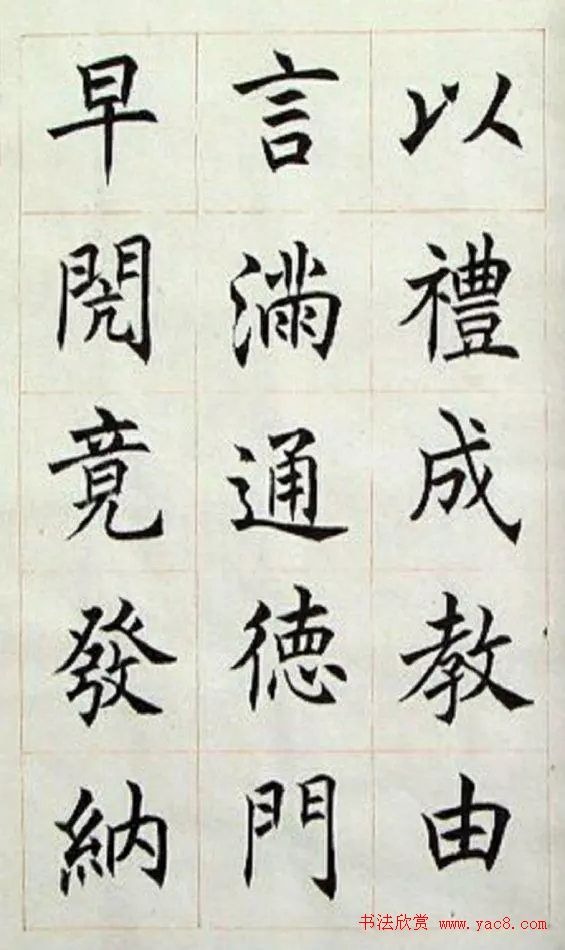 以禮成教由
言滿通徳門
早閌竟發納
书法欣赏 www.yac8.com